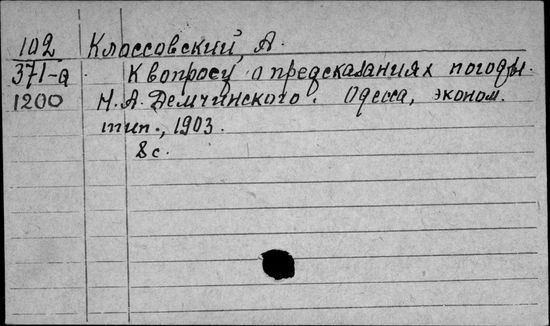 102 Клоссовский, А.
371-а К вопросу о предсказаниях погоды.
1200 Н.А. Демчинского. Одесса, эконом.
тип., 1903.
8с.